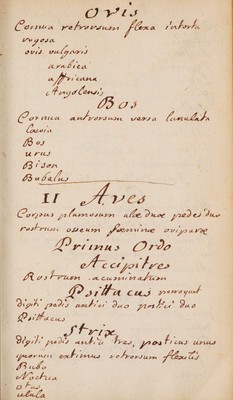 Ovis
Cornua retrorsum flexa intorta
rugosa
ovis vulgaris
arabica
affricana
Angolensis
Bos
Cornua antrorsum versa lunulata
laevia
Bos
urus
Bison
Bubalus
II Aves
Corpus plumosum alæ duæ pedes duo
rostrum osseum fœminæ oviparæ
Primus Ordo
Accipitres
Rostrum acuminatum
Psittacus perroquet
digiti pedis antici duo postici duo
Psittacus
Strix
digiti pedis antici tres, posticus unus
quorum extimus retrorsum flexilis
Bubo
Noctua
otus,
ulula